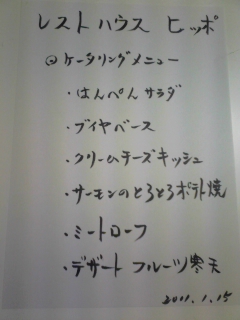 レストハウス ヒッポ
◎ケータリングメニュー
・はんぺんサラダ
・ブイヤベース
・クリームチーズキッシュ
・サーモンのとろとろポテト焼
・ミートローフ
・デザート フルーツ寒天
2011.1.15